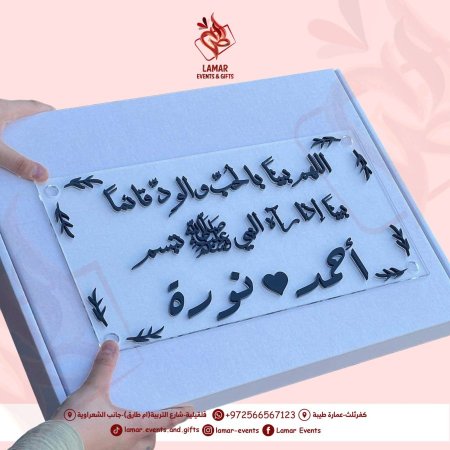 LAMAR
EVENTS & GIFTS
اللهم بيتاً بالحب والود قائماً
بيتاً إذا رآه النبي ﷺ تبسم
أحمد ♥ نورة
كفرثلث-عمارة طيبة
+972566567123
قلقيلية-شارع التربية(ام طارق)-جانب الشعراوية
lamar.events.and.gifts
lamar-events
Lamar Events